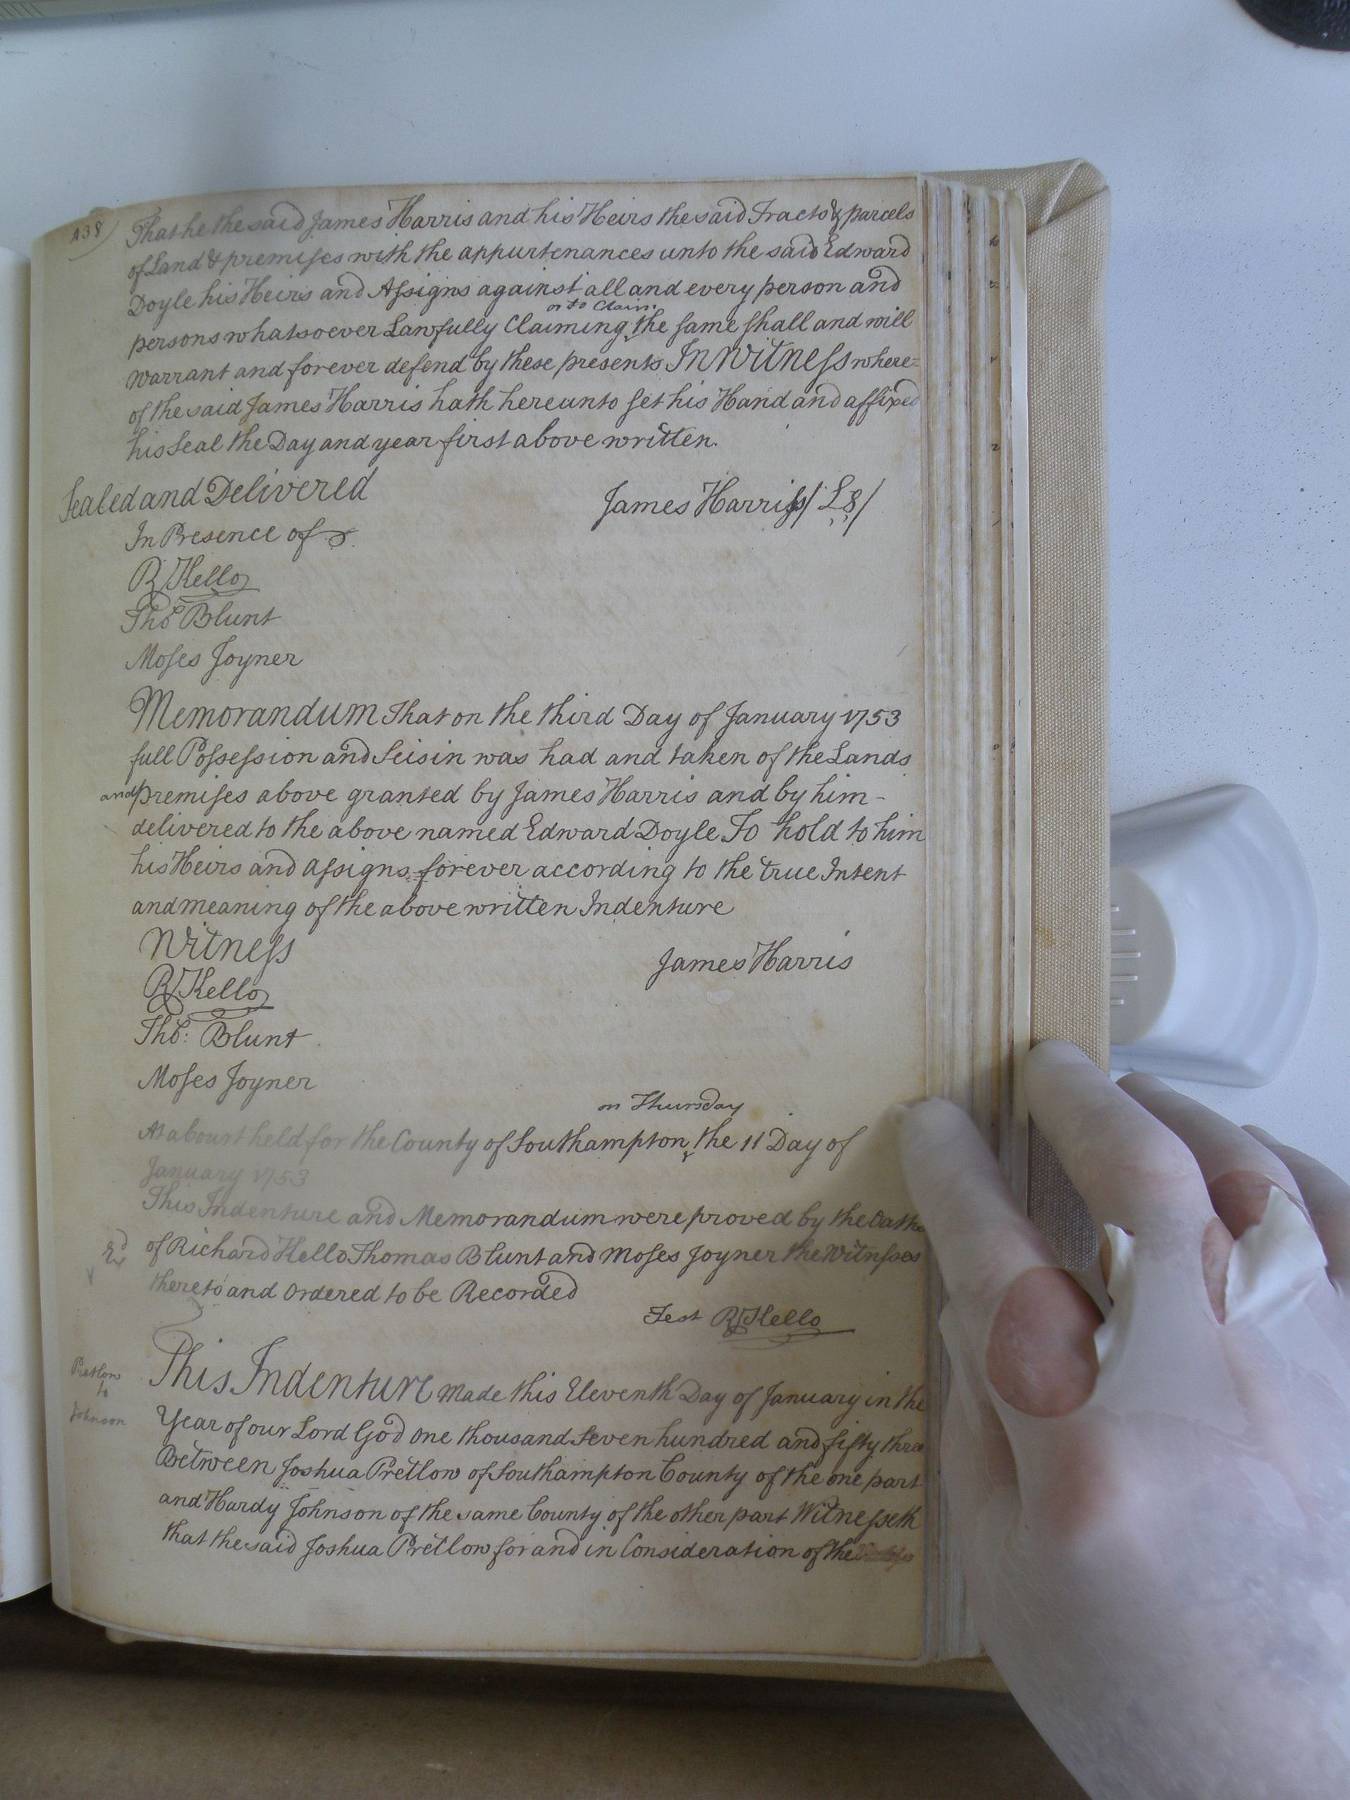 438)
That he the said James Harris and his Heirs the said Tracts & parcels
of Land & premises with the appurtenances unto the said Edward
Doyle his Heirs and Assigns against all and every person and
or to Claim
persons whatsoever Lawfully Claiming the same shall and will
warrant and forever defend by these presents In Witness where=
of the said James Harris hath hereunto set his Hand and affixed
his Seal the Day and year first above written.
Sealed and Delivered
James Harris (LS)
In Presence of
R Kello
Thos Blunt
Moses Joyner
Memorandum That on the third Day of January 1753
full Possession and Seisin was had and taken of the Lands
and premises above granted by James Harris and by him -
delivered to the above named Edward Doyle To hold to him
his Heirs and Assigns forever according to the true Intent
and meaning of the above written Indenture
Witness
James Harris
R Kello
Thos: Blunt
Moses Joyner
on Thursday
At a Court held for the County of Southampton the 11 Day of
January 1753
This Indenture and Memorandum were proved by the Oaths
of Richard Kello Thomas Blunt and Moses Joyner the Witnesses
Ex'd
thereto and Ordered to be Recorded
Test R Kello
Pretlow
to
Johnson
This Indenture Made this Eleventh Day of January in the
Year of our Lord God one thousand Seven hundred and fifty three
Between Joshua Pretlow of Southampton County of the one part
and Hardy Johnson of the same County of the other part Witnesseth
that the said Joshua Pretlow for and in Consideration of the